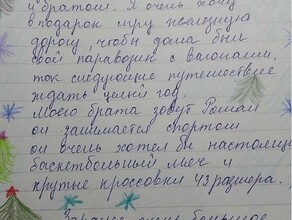 и братом. Я очень хочу
в подарок игру железную
дорогу, чтобы дома был
свой паравозик с вагонами,
так следующие путешествие
ждать целый год.
Моего брата зовут Роман
он занимается спортом
он очень хотел бы настоящий
баскетбольный мяч и
крутые кроссовки 43 размера.
Заранее очень большое